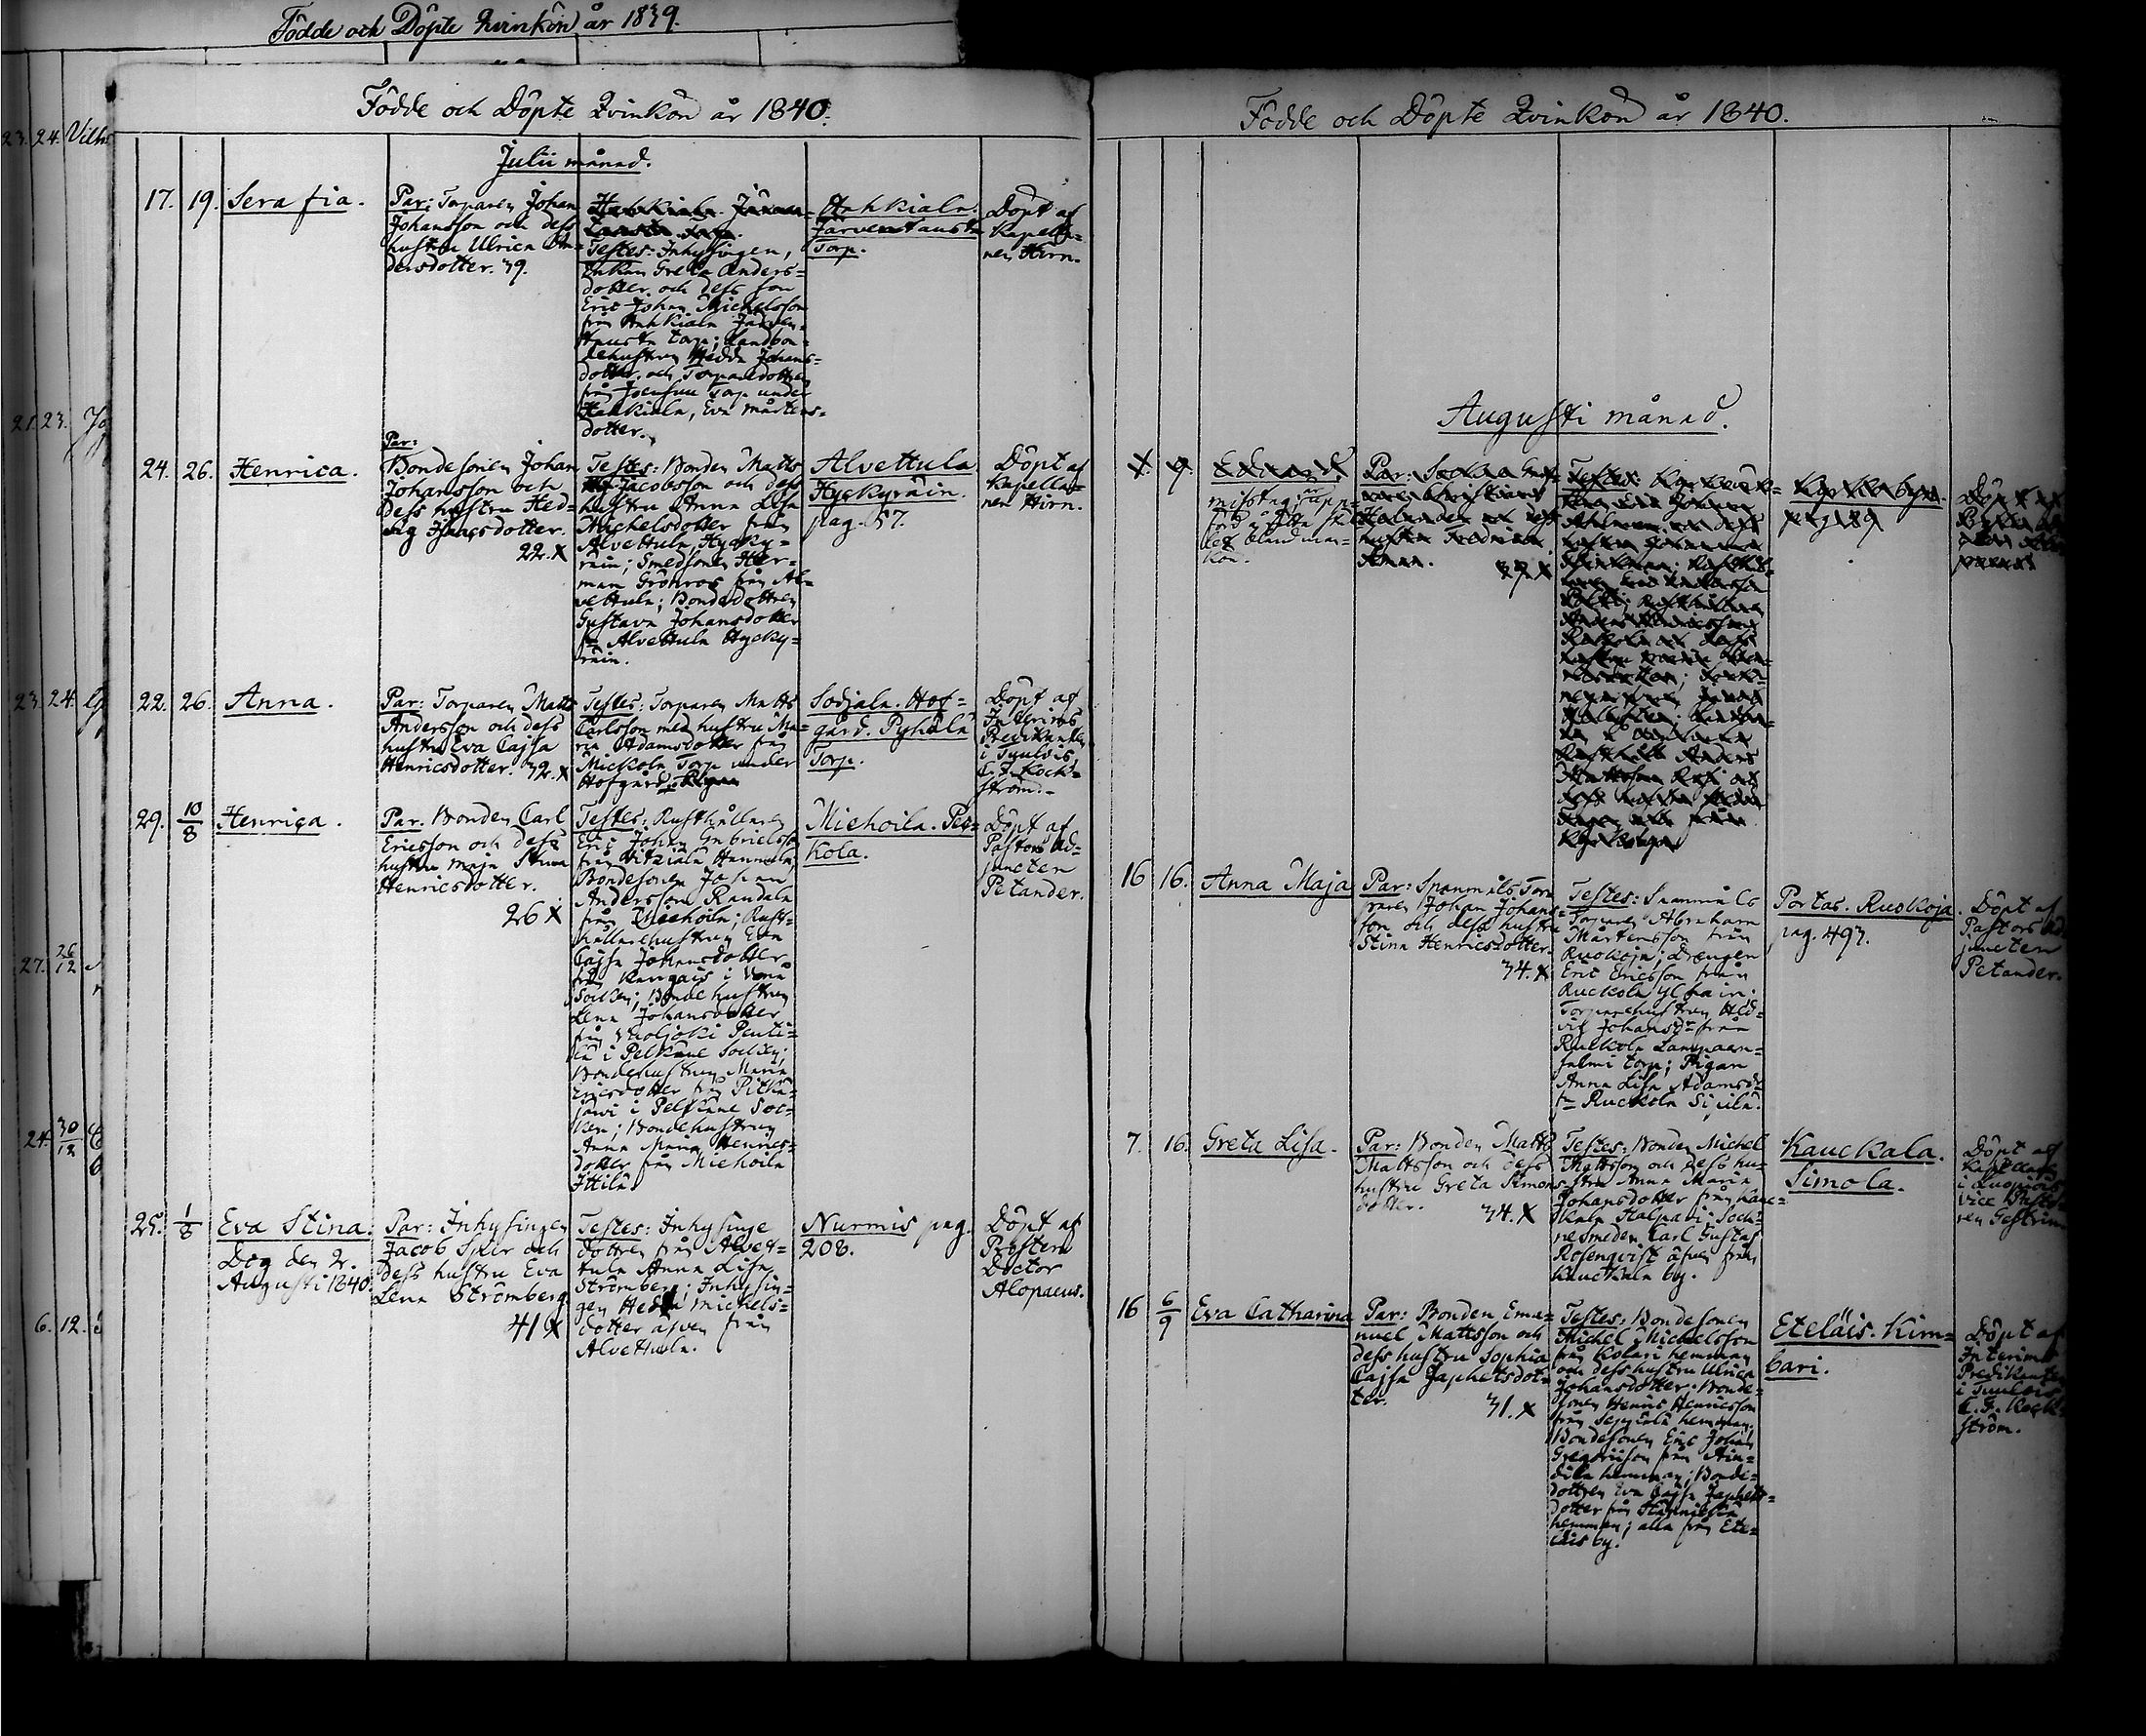 Födde och Döpte Qvinkön år 1839.
23. 24. Vilh
21. 23.
23. 24.
27. 26/12
24. 30/12
6. 12.
Födde och Döpte Qvinkön år 1840.
Julii månad.
17. 19. Serafia.
Par: Torparen Johan
Johansson och dess
hustru Ulrica An=
dersdotter. 39.
Testes: Inhysingen,
Enkan Greta Anders=
dotter och dess son
Eric Johan Michelsson
från Hahkiala Järven=
tausta torp; Landbon=
dehustrun Hedda Johans=
dotter och Torparedottren
från Joensuu Torp under
Hahkiala, Eva Mårtens=
dotter.
Hahkiala.
Järventausta
Torp.
Döpt af
Kapella=
nen Hirn.
24. 26. Henrica.
Par:
Bondesonen Johan
Johansson och
dess hustru Hed=
vig Johansdotter.
22. X
Testes: Bonden Matts
Jacobsson och dess
hustru Anna Lisa
Michelsdotter från
Alvettula, Hycky=
räin; Smedsonen Her=
man Grönroos från Al=
vettula; Bondedottren
Gustava Johansdotter
fr. Alvettula Hycky=
räin.
Alvettula
Hyckyräin.
pag. 57.
Döpt af
Kapella=
nen Hirn.
22. 26. Anna.
Par: Torparen Matts
Andersson och dess
hustru Eva Cajsa
Henricsdotter. 32. X
Testes: Torparen Matts
Carlsson med hustru Ma=
ria Adamsdotter från
Mickola Torp under
Hofgård.
Sodjala. Hof=
gård. Pyhälä
Torp.
Döpt af
Interims
Predikanten
i Tuulois,
C. F. Rock=
ström.
29. 10/8 Henrica.
Par. Bonden Carl
Ericsson och dess
hustru Maja Stina
Henricsdotter.
26 X
Testes: Rusthållaren
Eric Johan Gabrielsson
från Vitziälä Hannula;
Bondesonen Johan
Andersson Randala
från Miehoila; Rust=
hållarehustrun Eva
Cajsa Johansdotter
från Kurrgais i Vånå
Socken; Bondehustrun
Lena Johansdotter
från Vuoljoki Pentti=
lä i Pelkäne Socken;
Bondehustrun Maria
Ericsdotter från Pitkä=
järvi i Pelkäne Soc=
ken; Bondehustrun
Anna Maria Henrics=
dotter från Miehoila
Ittilä.
Miehoila. Pek=
kola.
Döpt af
Pastors Ad=
juncten
Petander.
25. 1/8 Eva Stina.
Dog den 2.
Augusti 1840.
Par: Inhysingen
Jacob Spier och
dess hustru Eva
Lena Strömberg
41 X
Testes: Inhysinge
dottren från Alvet=
tula Anna Lisa
Strömberg; Inhysin=
gen Hedda Michels=
dotter äfven från
Alvettula.
Nurmis pag.
208.
Döpt af
Prosten
Doctor
Alopaeus.
Födde och Döpte Qvinkön år 1840.
Augusti månad.
9. Edvard
misstag; upp=
förd å rätta stäl=
let bland man=
kön.
Kyrkobyn.
pag 189
16 16. Anna Maja
Par: Spanmåls Tor=
paren Johan Johans=
son och dess hustru
Stina Henricsdotter.
34. X
Testes: Spanmåls
Torparen Abraham
Mårtensson från
Ruokoja; Drengen
Eric Ericsson från
Ruckola Ylhäin.
Torparehustrun Hed=
vig Johansdr från
Ruckola Lampaan=
salmi torp; Pigan
Anna Lisa Adamsdr
fr Ruckola Sipilä.
Portas. Ruokoja.
pag. 493.
Döpt af
Pastors Ad
juncten
Petander.
7. 16. Greta Lisa.
Par: Bonden Matts
Mattsson och dess
hustru Greta Simons=
dotter. 34. X
Testes: Bonden Michel
Mattsson och dess hu=
stru Anna Maria
Johansdotter från Kauc=
kala Halpari; Sock=
nesmeden Carl Gustaf
Rosenqvist äfven från
Kauckala by.
Kauckala.
Simola.
Döpt af
Kapellanen
i Luopiois
Vice Pasto=
ren Gestrin
16 6/9 Eva Catharina
Par: Bonden Ema=
nuel Mattsson och
dess hustru Sophia
Cajsa Japhetsdot=
ter. 31. X
Testes: Bondesonen
Michel Michelsson
från Kolari hemman
och dess hustru Ulrica
Johansdotter; Bonde=
sonen Henric Henricsson
från Seppälä hemman;
Bondesonen Eric Johan
Gregoriisson från Ain=
dila hemman; Bonde=
dottren Eva Cajsa Japhets=
dotter från
hemman; alla från Ete=
läis by.
Eteläis. Kim=
bari.
Döpt af
Interims
Predikanten
i Tuulois,
C. F. Rock=
ström.